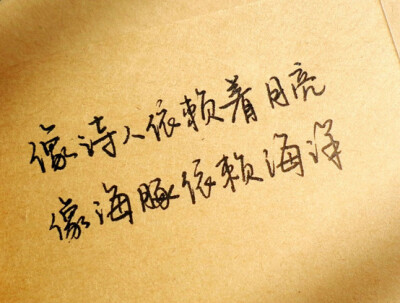 像诗人依赖着月亮
像海豚依赖海洋